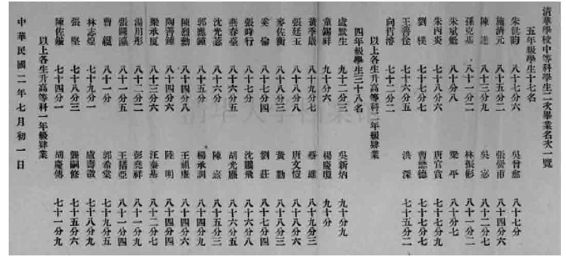 清華學校中等科學生二次畢業名次一覽
五年級學生十七名
朱世昀 吳曾愈 八十七分
施濟元 八十五分二 張景甫 八十四分六
陳達 八十三分 八十二分七
孫克基 八十一分二 林振彬 八十一分二
朱斌魁 八十分八 梁平 八十分七
朱丙炎 七十八分七 唐官賞 七十九分七
劉樸 七十七分六 曹懋德 七十七分六
王善佺 七十六分 洪深 七十五分二
向哲濬 七十二分二
以上各生升高等科二年級肄業
四年級學生三十八名
盧默生 九十二分三 吳新炳 九十分九
童錫祥 九十分六 楊慶 九十分
黃季巖 八十九分七 蔡雄 八十九分三
張廷玉 八十八分九 八十八分
麥佐衡 八十八分三 黃勤 八十八分三
吳倫 八十七分四 劉莊 八十七分四
張時行 八十七分 沈鵬飛 八十六分七
燕春臺 八十六分五 胡光麃 八十六分五
沈光苾 八十六分 陳嘉 八十五分三
郭應鍾 八十四分八 楊承訓 八十四分九
陳烈勳 八十四分八 王祖廉 八十四分
陶善鍾 八十四分四 陸明 八十四分四
梁承厦 八十三分六 汪泰基 八十二分七
湯用彤 八十二分二 彭堯祥 八十一分九
張閶瀛 八十一分五 王獳亞 八十一分四
曹 八十一分 郭希棠 七十九分五
林志煌 七十九分 盧壽 七十八分九
張堅 七十八分三 龔嗣修 七十五分六
陳佐 七十四分一 胡慶傳 七十一分九
以上各生升高等科一年級肄業
中華民國二年七月初一日